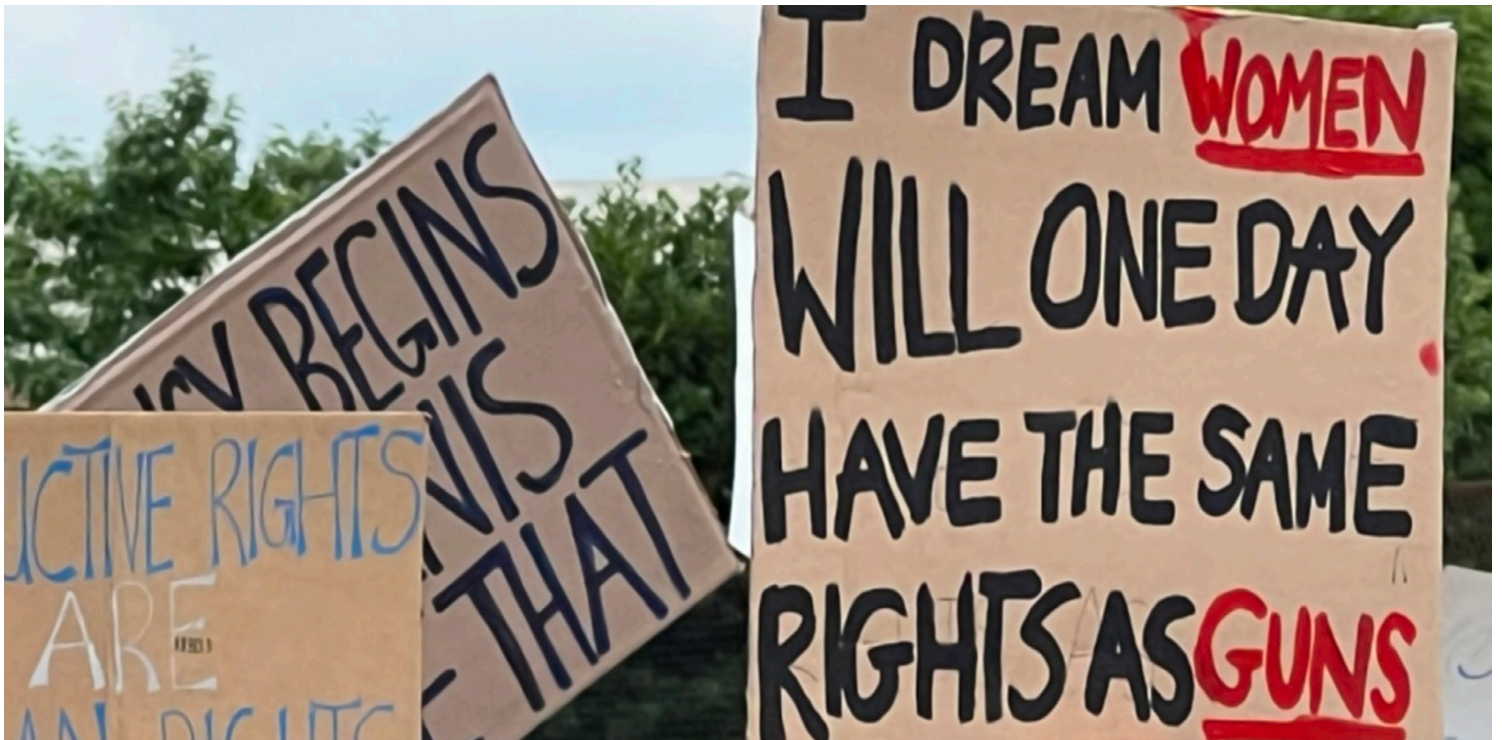 BEGINS
THAT
UCTIVE RIGHTS
ARE
RIGHTS
I DREAM WOMEN
WILL ONE DAY
HAVE THE SAME
RIGHTS AS GUNS